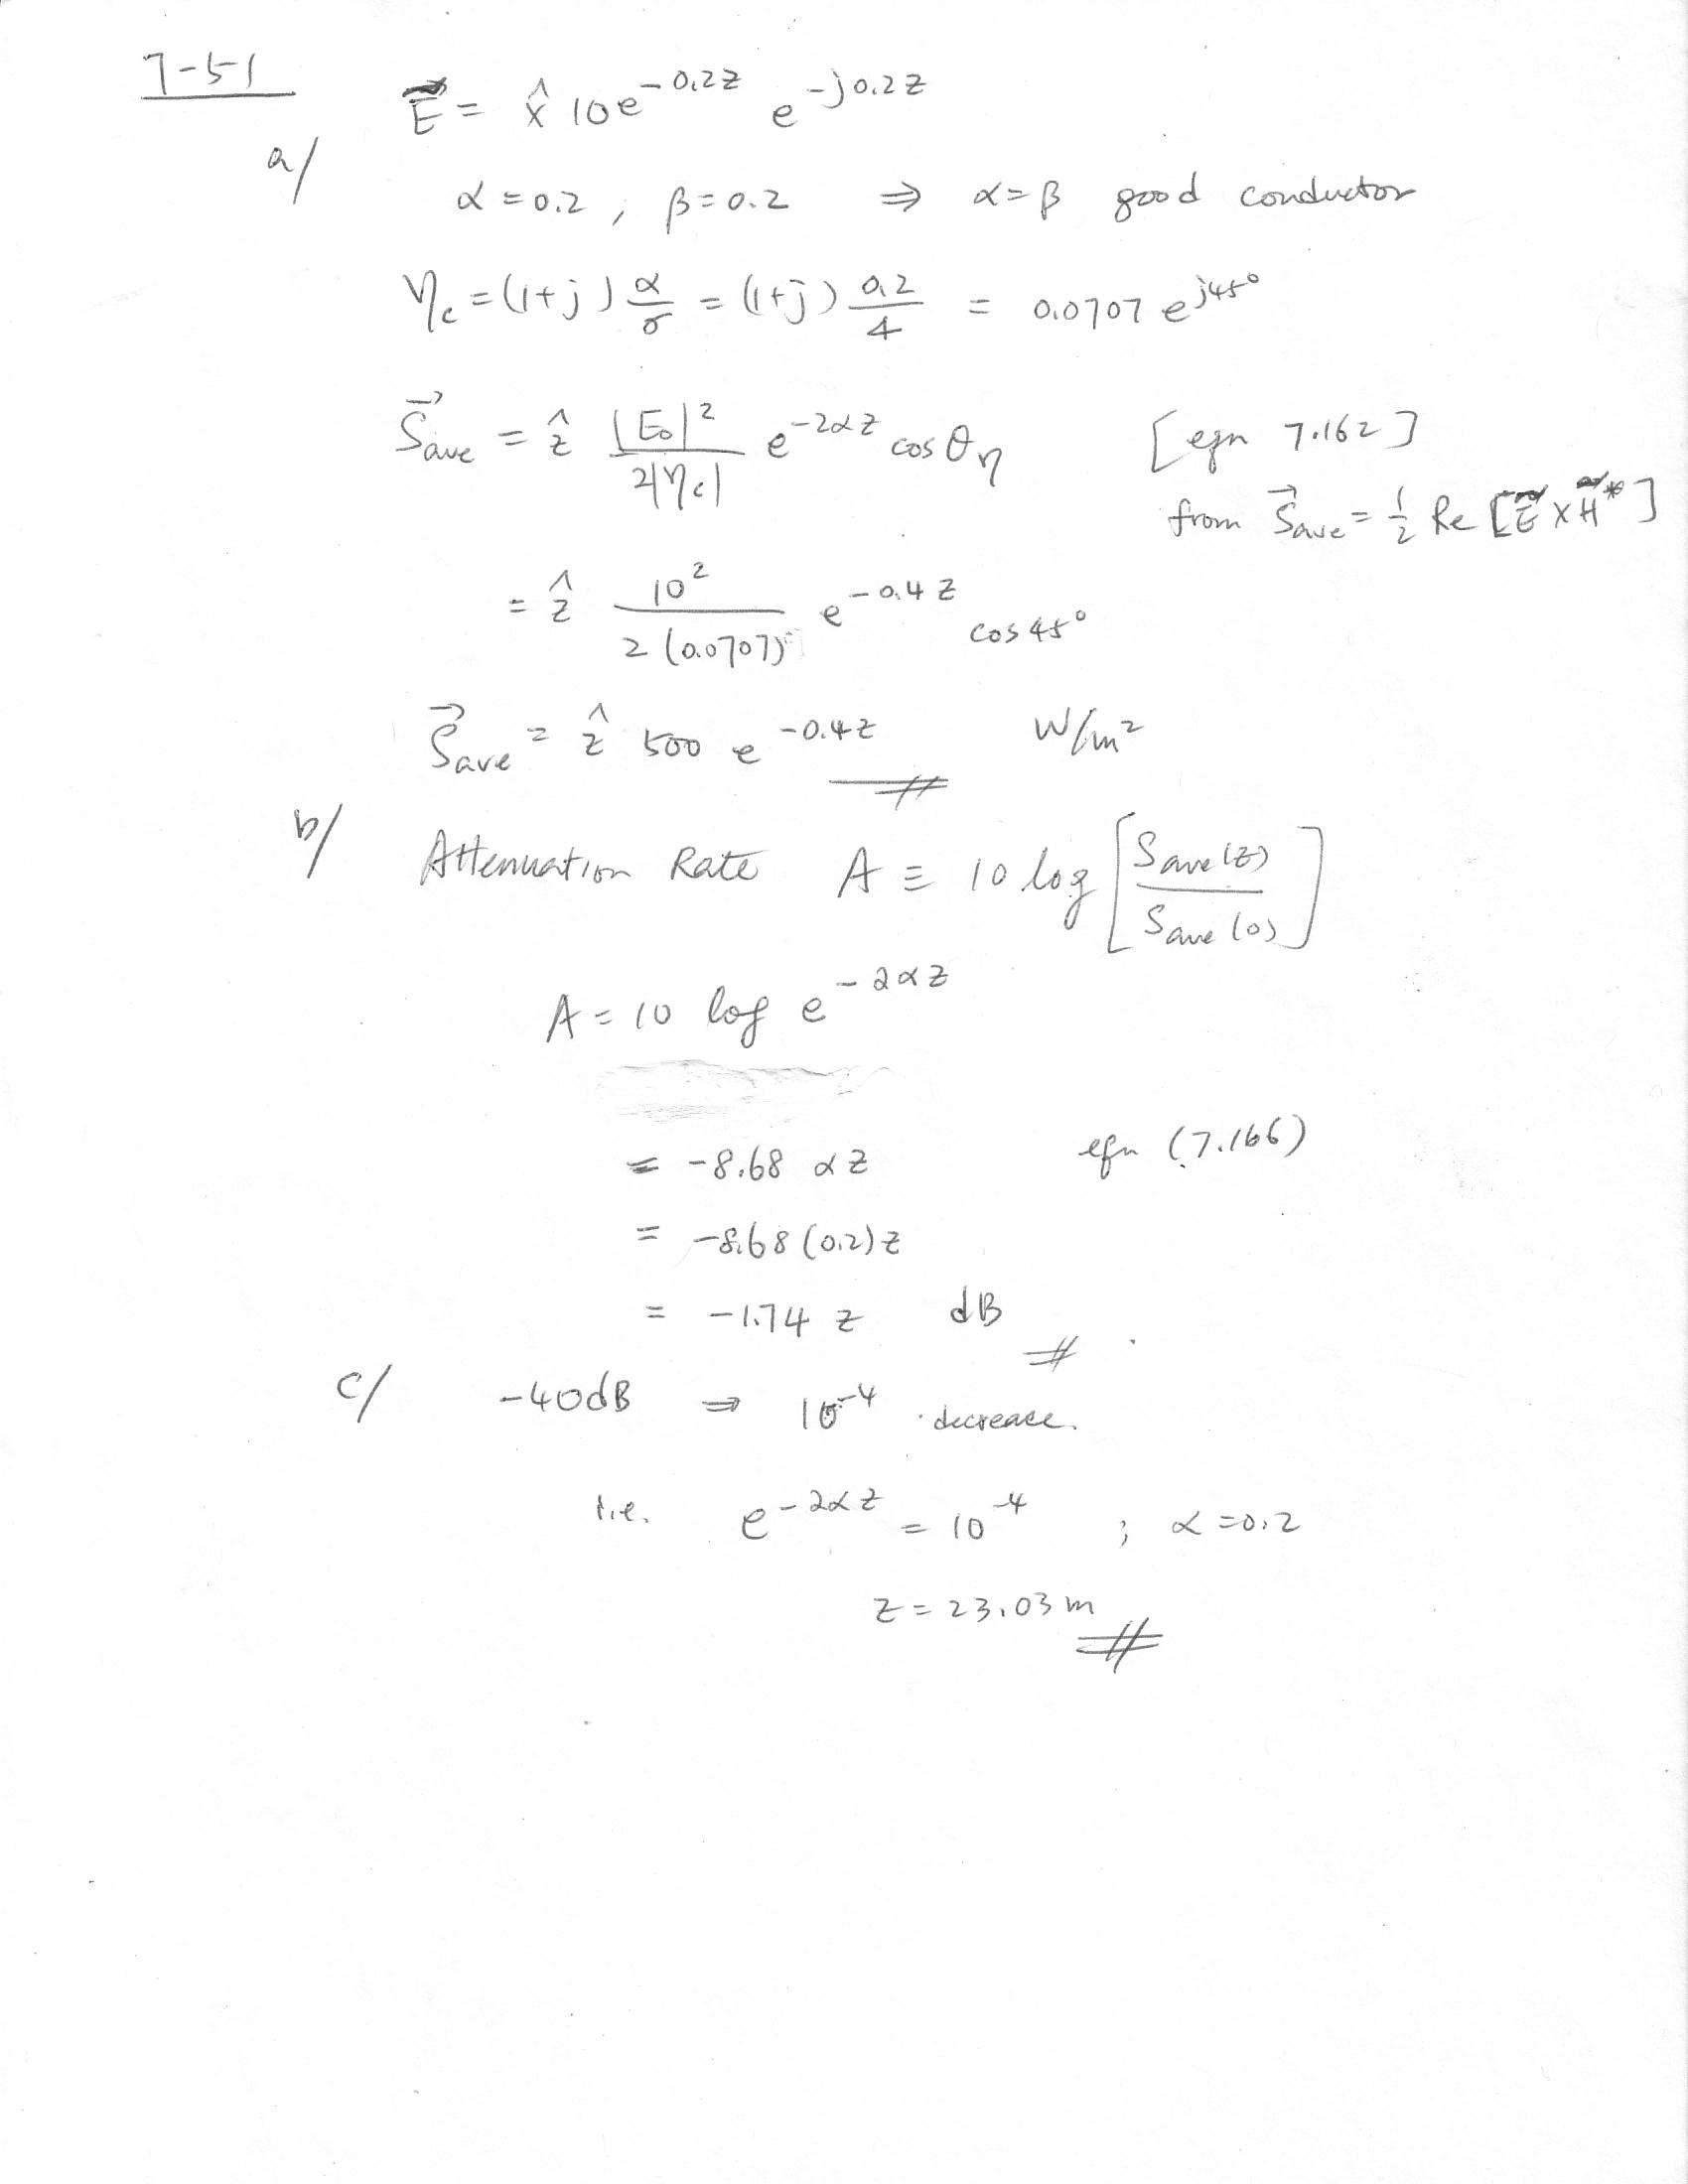 7-5-1
Ẽ = x̂ 10e^{-0.2z} e^{-j0.2z}
a/
α = 0.2, β = 0.2 ⇒ α = β good conductor
η_c = (1+j) α/σ = (1+j) 0.2/4 = 0.0707 e^{j45°}
S⃗ave = ẑ |E₀|²/2|η_c| e^{-2αz} cos θ_η [eqn 7.162]
from S⃗ave = ½ Re [Ẽ × H̃*]
= ẑ 10²/2(0.0707) e^{-0.4z} cos 45°
S⃗ave = ẑ 500 e^{-0.4z} W/m²
b/ Attenuation Rate A ≡ 10 log [Save(z)/Save(0)]
A = 10 log e^{-2αz}
= -8.68 αz eqn (7.166)
= -8.68 (0.2) z
= -1.74 z dB
c/ -40dB ⇒ 10^{-4} decrease.
i.e. e^{-2αz} = 10^{-4} ; α = 0.2
z = 23.03 m